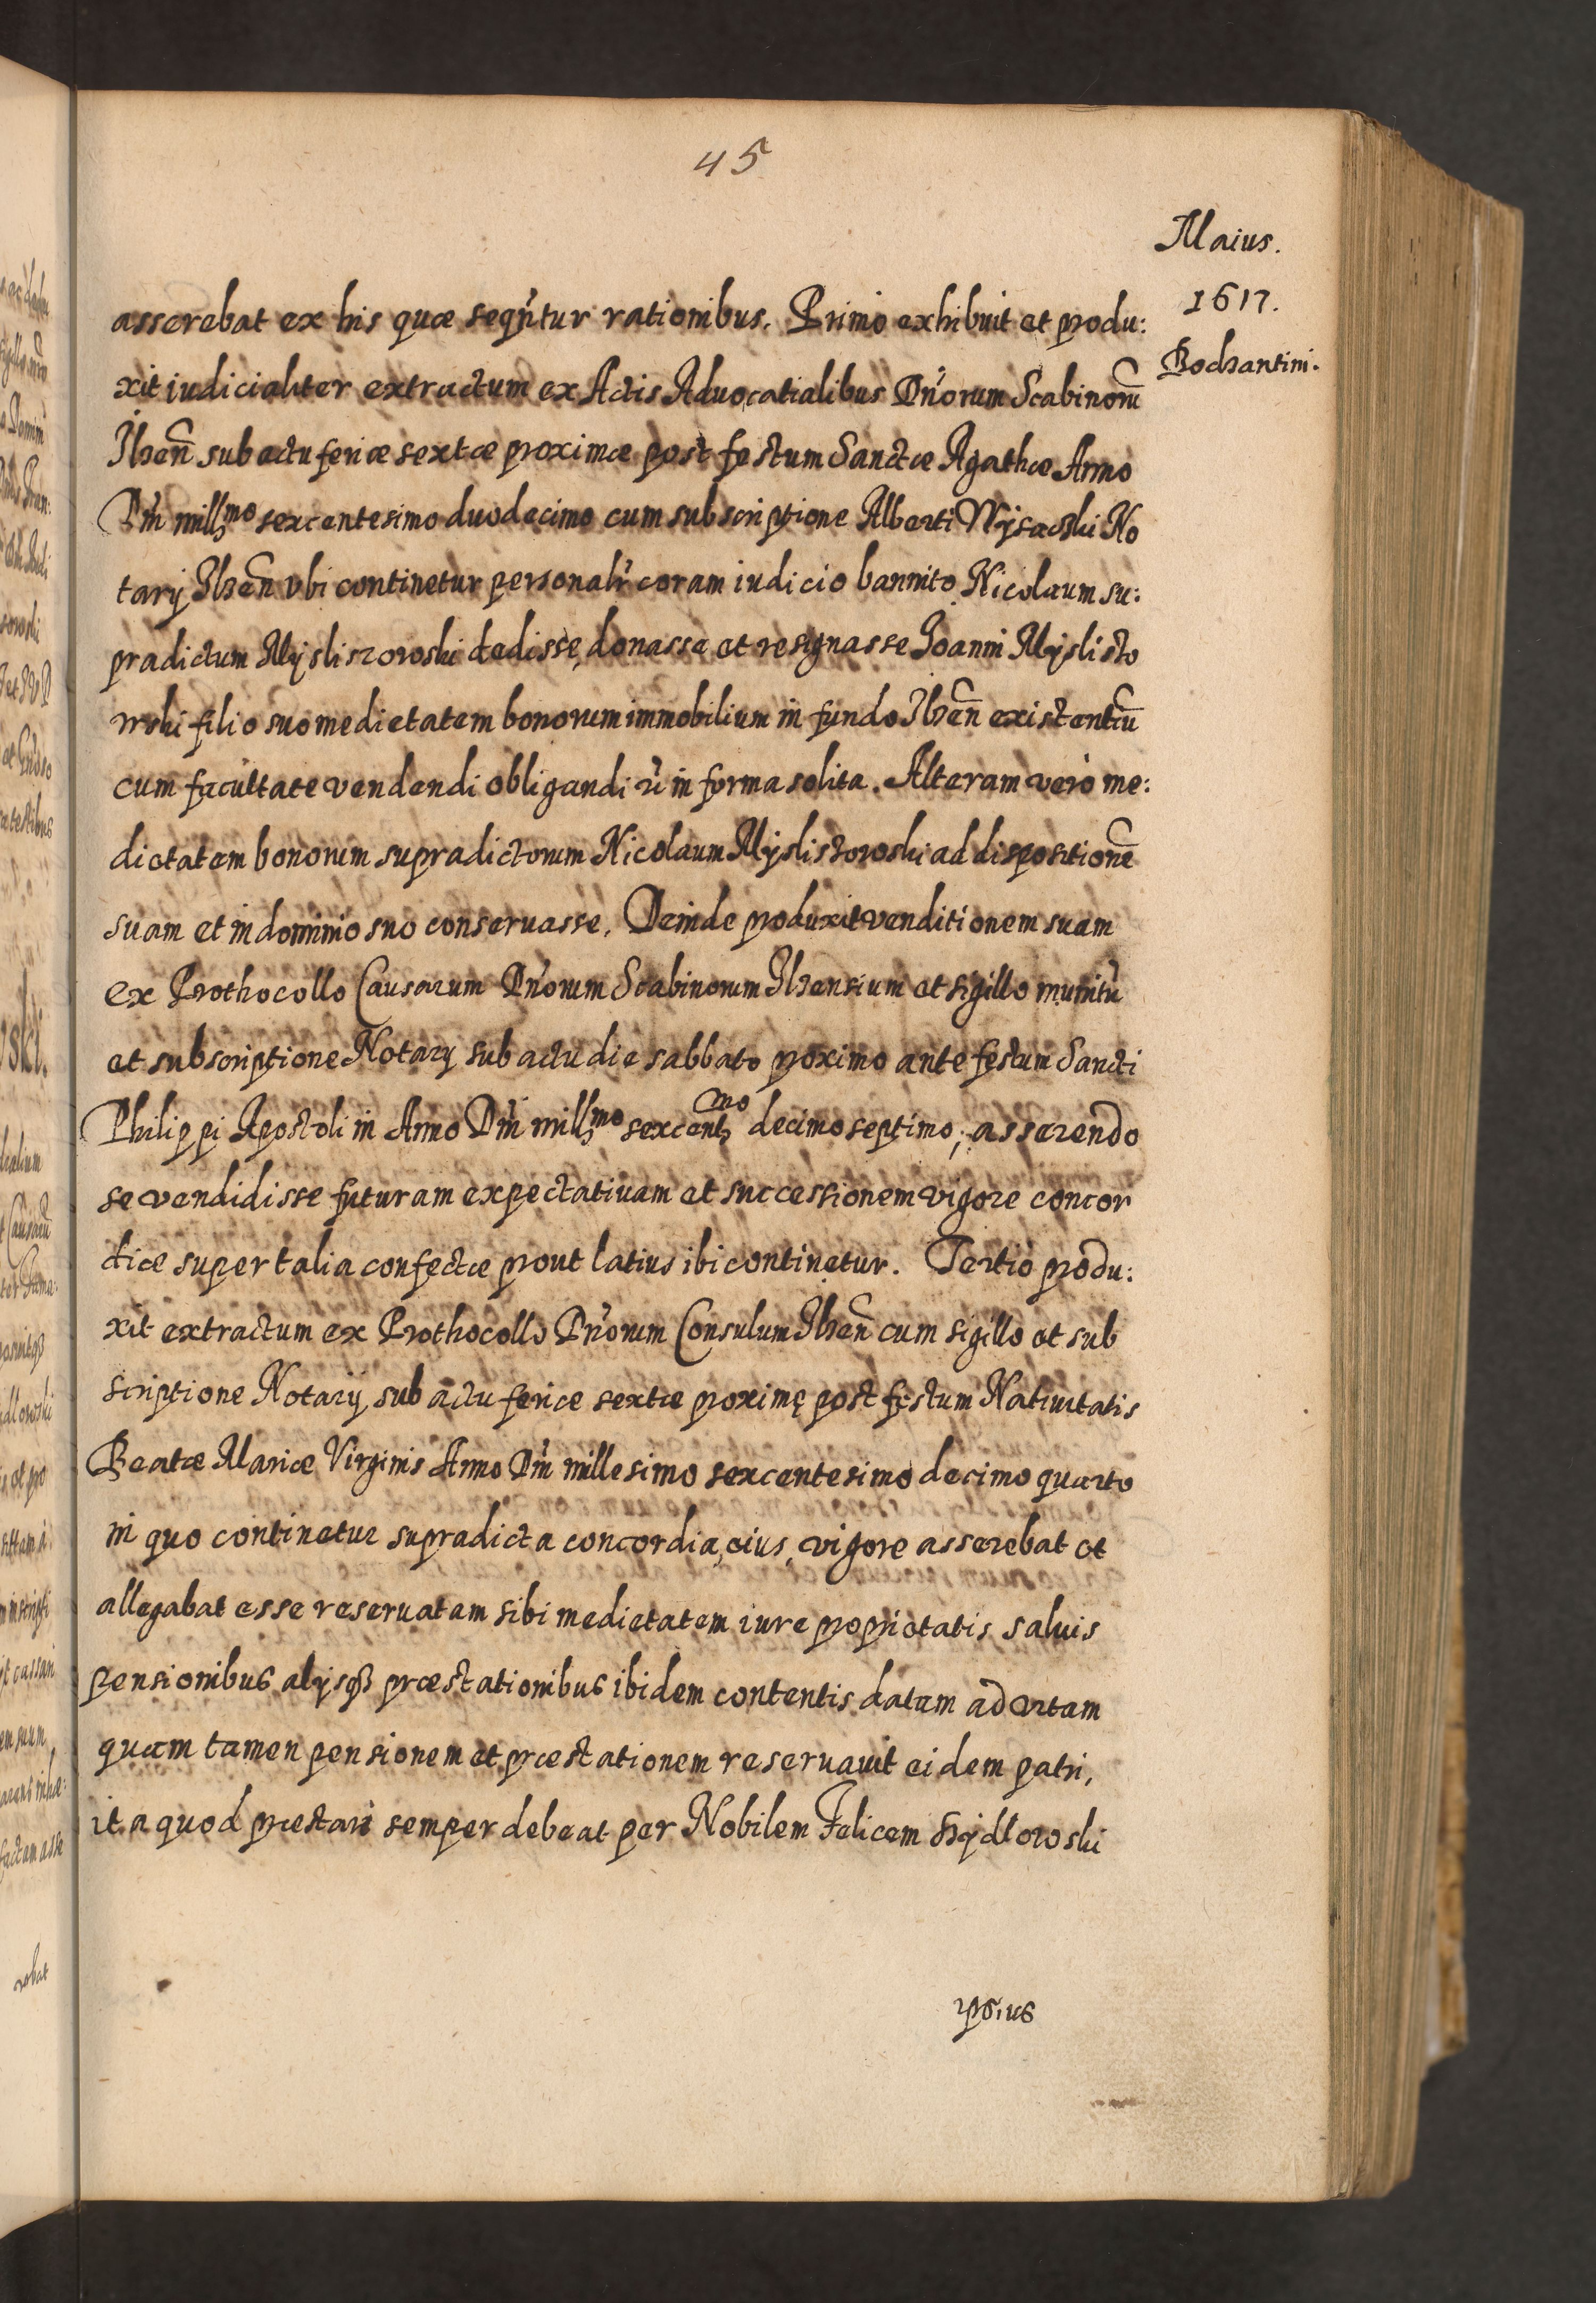 45
Maius.
1617.
Bodzantini.
asserebat ex his quæ seqn̄tur rationibus. Primo exhibuit et produ:
xit iudicialiter extractum ex Actis Aduocatialibus Dn̄orum Scabinorū
Ilzen̄ sub actu feriæ sextæ proximæ post festum Sanctæ Agathæ Anno
Dn̄i mill<sup>mo</sup> sexcentesimo duodecimo cum subscriptione Alberti Wysocki No
tarij Ilzen̄ vbi continetur personalr̄ coram iudicio bannito Nicolaum su:
pradictum Myśliszowski dedisse, donasse et resignasse Joanni Mysliszo
wski filio suo medietatem bonorum immobilium in fundo Ilzen̄ existentiū
cum facultate vendendi obligandi &c in forma solita. Alteram verò me:
dietatem bonorum supradictorum Nicolaum Mysliszowski ad dispositionē
suam et in dominio suo conseruasse. Deinde produxit venditionem suam
ex Prothocollo Causarum Dn̄orum Scabinorum Ilzensium et sigillo munitū
et subscriptione Notarij sub actu die sabbato proximo ante festum Sancti
Philippi Apostoli in Anno Dn̄i mill<sup>mo</sup> sexcent<sup>mo</sup> decimo septimo, asserendo
se vendidisse futuram expectatiuam et successionem vigore concor
diæ super talia confectæ prout latius ibi continetur. Tertiò produ:
xit extractum ex Prothocollo Dn̄orum Consulum Ilzen̄ cum sigillo et sub
scriptione Notarij, sub actu feriæ sextæ proximę post festum Natiuitatis
Beatæ Mariæ Virginis Anno Dn̄i millesimo sexcentesimo decimo quarto
in quo continetur supradicta concordia, eius, vigore asserebat et
allegabat esse reseruatam sibi medietatem iure proprietatis saluis
pensionibus alijsq₃ præstationibus ibidem contentis datam ad vitam
quam tamen pensionem et præstationem reseruauit eidem patri,
ita quod præstari semper debeat per Nobilem Felicem Szydlowski
ipsius